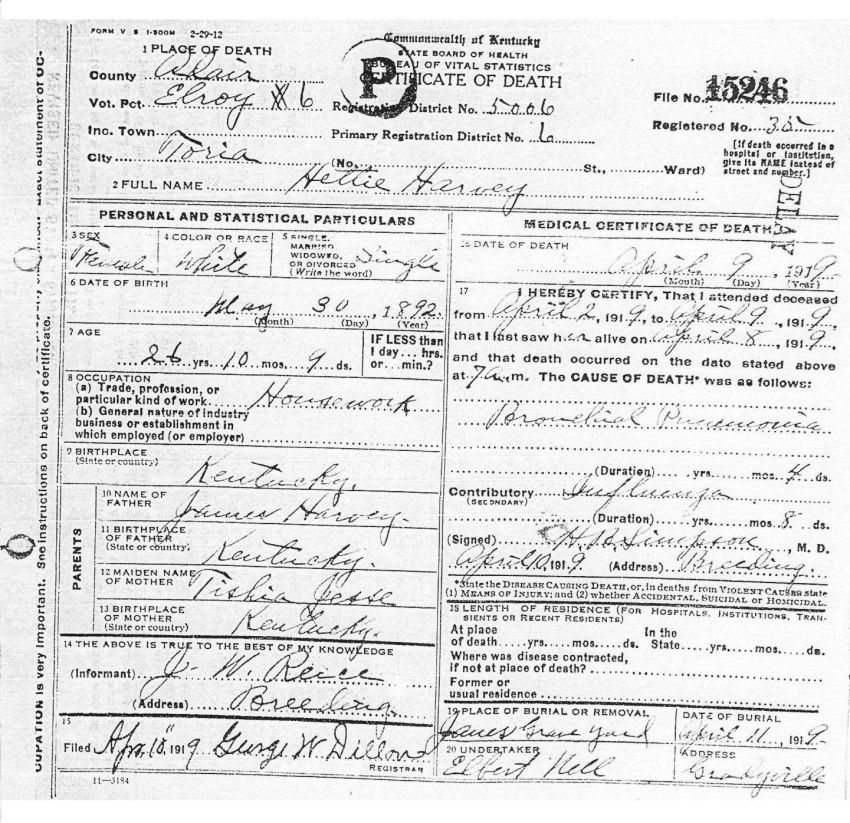 FORM V S 1-500M 2-29-12
Commonwealth of Kentucky
STATE BOARD OF HEALTH
BUREAU OF VITAL STATISTICS
CERTIFICATE OF DEATH
P
1 PLACE OF DEATH
County Adair
Vot. Pct. Elroy #6
Registration District No. 5006
File No. 15246
Inc. Town
Primary Registration District No. 6
Registered No. 35
City Toria (No. St., Ward)
[If death occurred in a hospital or institution, give its NAME instead of street and number.]
2 FULL NAME Hettie Harvey
PERSONAL AND STATISTICAL PARTICULARS
3 SEX Female
4 COLOR OR RACE White
5 SINGLE, MARRIED WIDOWED, OR DIVORCED (Write the word) Single
6 DATE OF BIRTH
May 30, 1892
(Month) (Day) (Year)
7 AGE
26 yrs. 10 mos. 9 ds.
IF LESS than 1 day... hrs. or... min.?
8 OCCUPATION
(a) Trade, profession, or
particular kind of work Housework
(b) General nature of industry
business or establishment in
which employed (or employer)
9 BIRTHPLACE
(State or country) Kentucky.
PARENTS
10 NAME OF FATHER James Harvey
11 BIRTHPLACE OF FATHER (State or country) Kentucky.
12 MAIDEN NAME OF MOTHER Tishia Jesse
13 BIRTHPLACE OF MOTHER (State or country) Kentucky.
14 THE ABOVE IS TRUE TO THE BEST OF MY KNOWLEDGE
(Informant) J. W. Reice
(Address) Breeding
15
Filed Apr. 10" 1919 George W Dillon
REGISTRAR
11—3184
MEDICAL CERTIFICATE OF DEATH
16 DATE OF DEATH
April 9, 1919
(Month) (Day) (Year)
17 I HEREBY CERTIFY, That I attended deceased
from April 2, 1919, to April 9, 1919,
that I last saw her alive on April 8, 1919,
and that death occurred on the date stated above
at 7 a.m. The CAUSE OF DEATH* was as follows:
Bronchial Pneumonia
(Duration) yrs. mos. 4 ds.
Contributory Influenza
(SECONDARY)
(Duration) yrs. mos. 8 ds.
(Signed) H. B. Simpson, M. D.
April 10, 1919 (Address) Breeding
*State the DISEASE CAUSING DEATH, or, in deaths from VIOLENT CAUSES state
(1) MEANS OF INJURY; and (2) whether ACCIDENTAL, SUICIDAL or HOMICIDAL.
18 LENGTH OF RESIDENCE (FOR HOSPITALS, INSTITUTIONS, TRAN-
SIENTS OR RECENT RESIDENTS)
At place of death yrs. mos. ds. In the State yrs. mos. ds.
Where was disease contracted,
if not at place of death?
Former or
usual residence
19 PLACE OF BURIAL OR REMOVAL
Janes Grave Yard
DATE OF BURIAL
April 11, 1919
20 UNDERTAKER
Elbert Nell
ADDRESS
Gradyville
CUPATION is very important. See instructions on back of certificate.